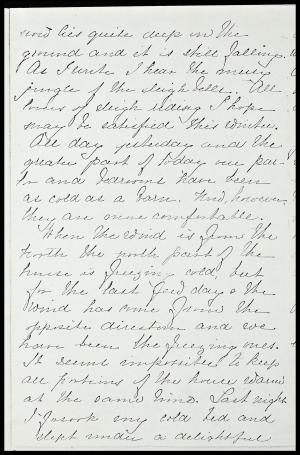 and lies quite deep on the
ground and it is still falling.
As I write I hear the merry
jingle of the sleigh bells. All
lovers of sleigh riding I hope
may be satisfied this winter.
All day yesterday and the
greater part of today our par-
lor and bedrooms have been
as cold as a barn. Now, however,
they are more comfortable.
When the wind is from the
North the north part of the
house is freezing cold, but
for the last few days the
wind has come from the
opposite direction and we
have been the freezing ones.
It seems impossible to keep
all portions of the house warm
at the same time. Last night
I forsook my cold bed and
slept under a delightful